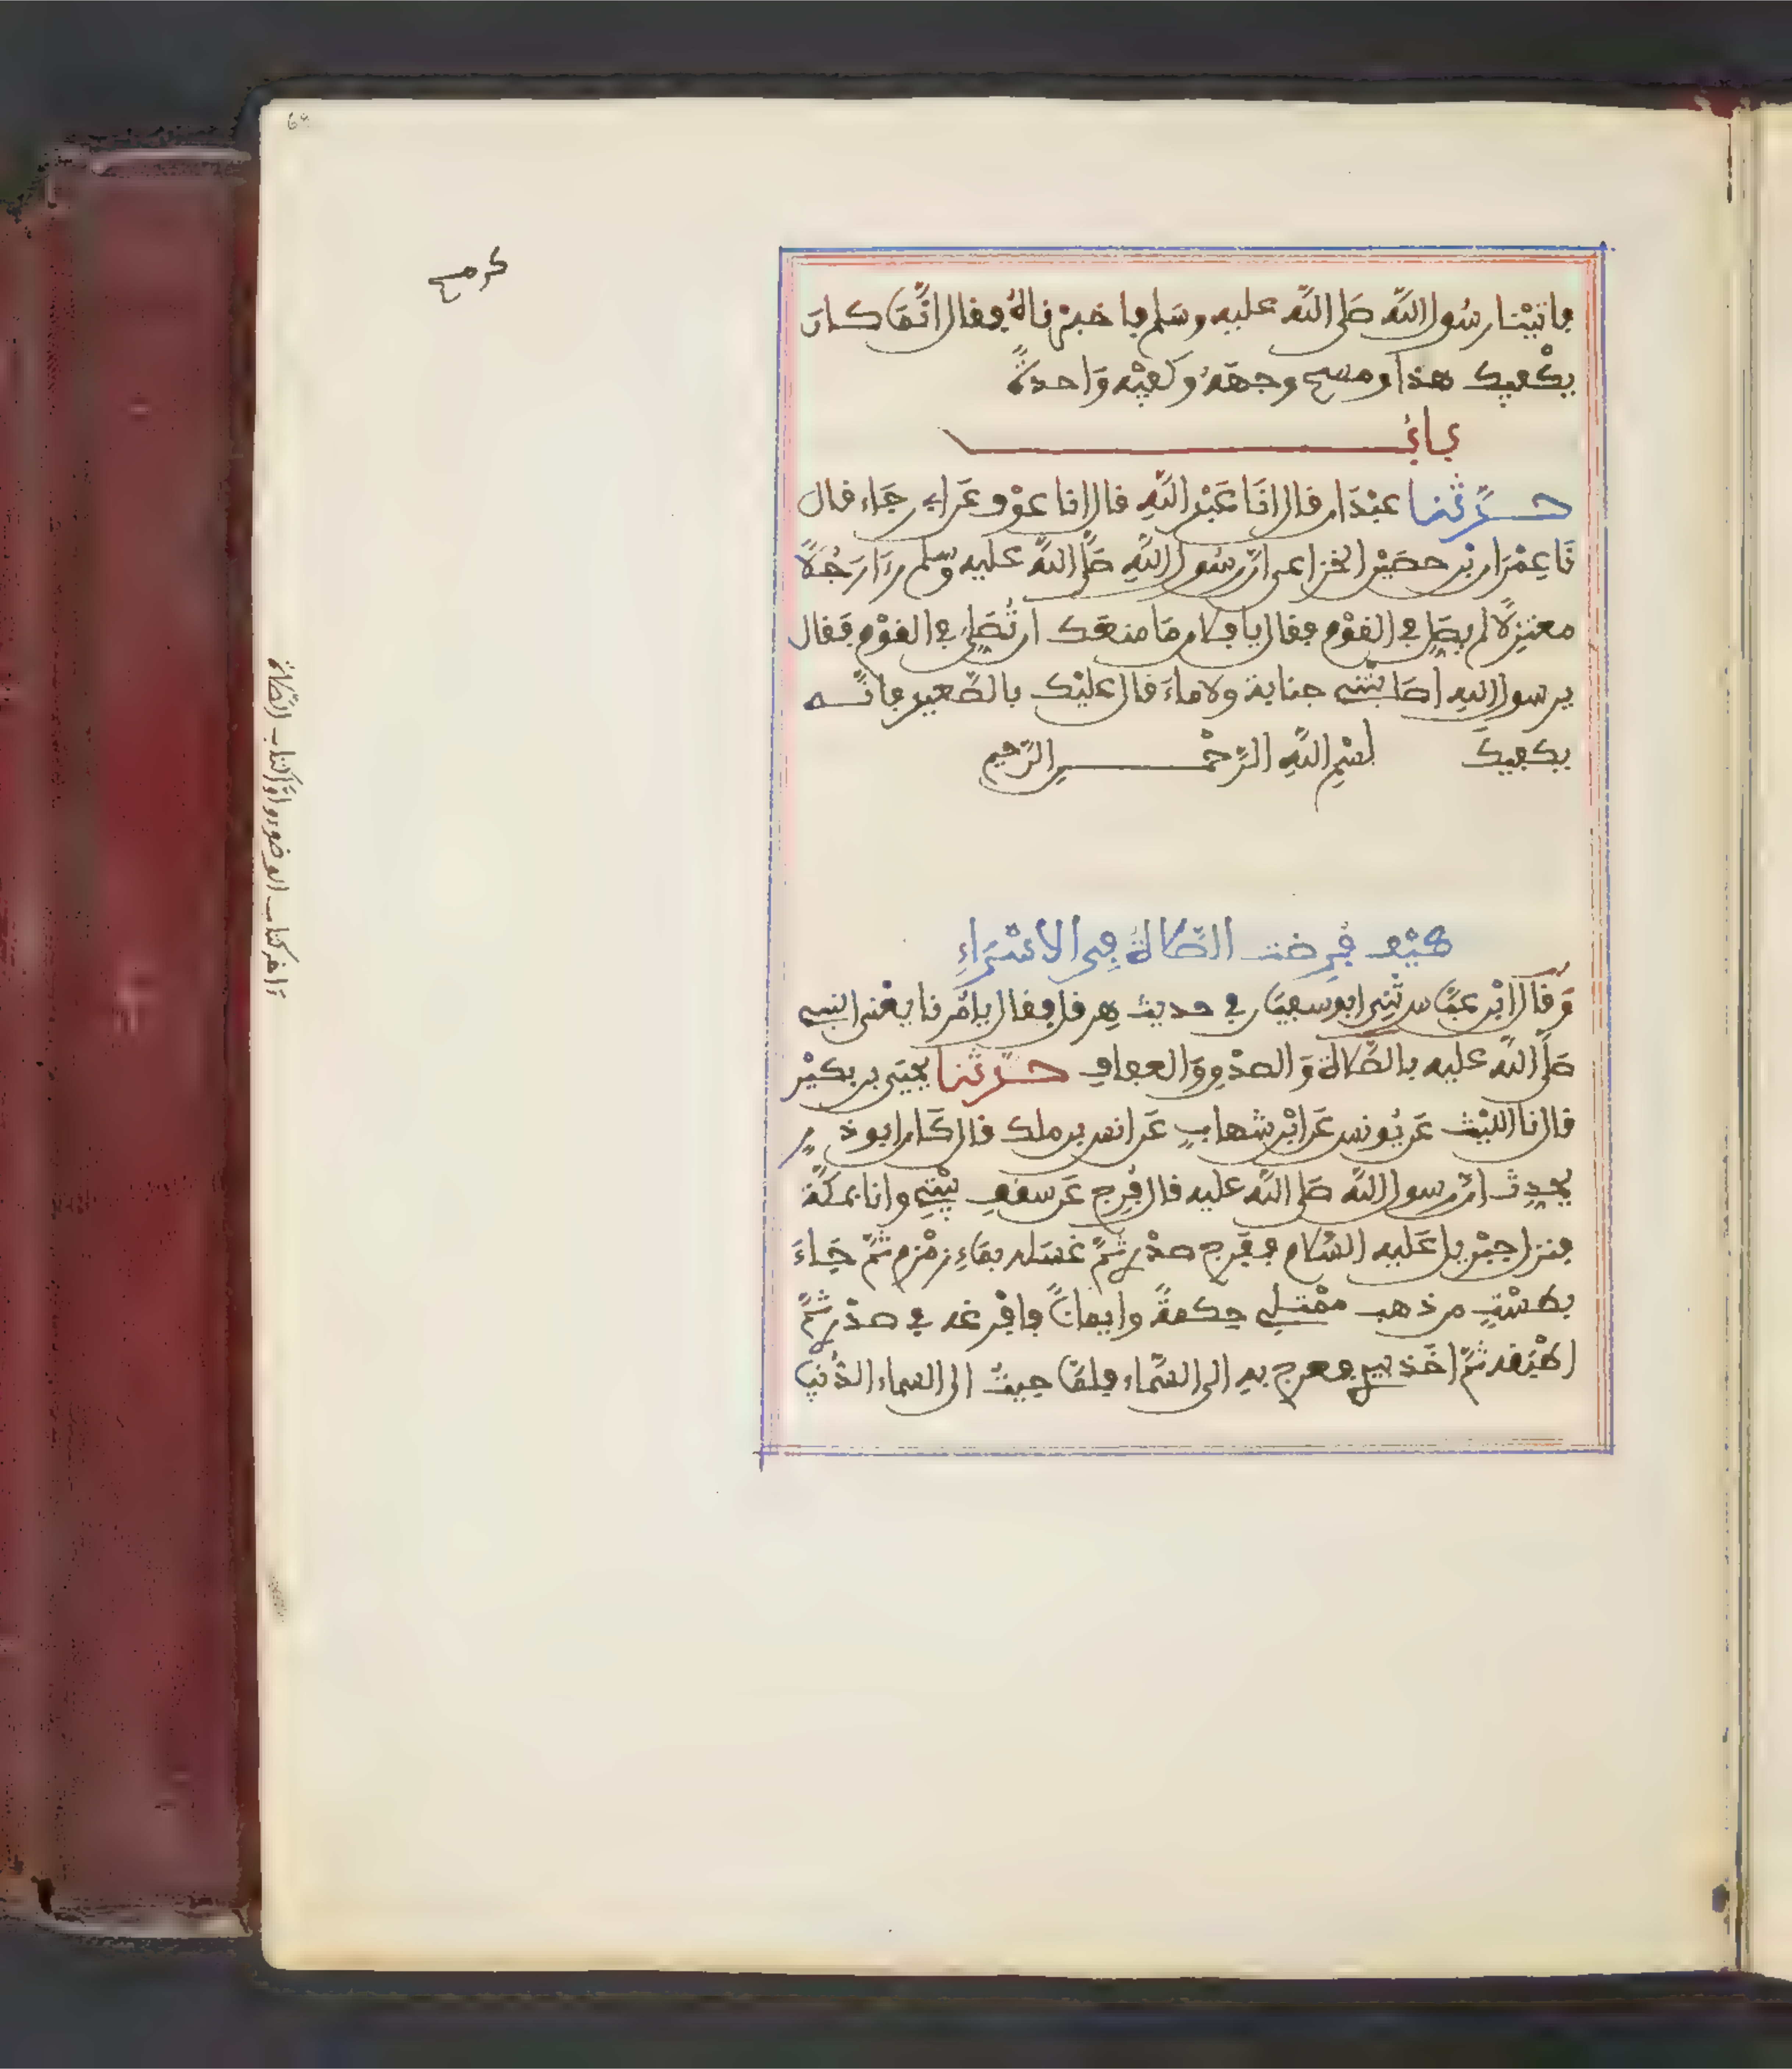 فاتينا رسول الله صلى الله عليه وسلم فاخبرناه فقال انما كان
يكفيك هذا ومسح وجهه وكفيه واحدة
باب
حدثنا عبدان قال انا عبد الله قال انا عوف عن ابي رجاء قال
نا عمران بن حصين الخزاعي ان رسول الله صلى الله عليه وسلم رءا رجلا
معتزلا لم يصل في القوم فقال يا فلان ما منعك ان تصلي في القوم فقال
يرسول الله اصابتني جنابة ولا ماء قال عليك بالصعيد فانه
يكفيك بسم الله الرحمن الرحيم
كيف فرضت الصلاة في الاسراء
وقال ابن عباس ثني ابو سفيان في حديث هرقل فقال يامرنا يعني النبي
صلى الله عليه بالصلاة والصدق والعفاف حدثنا يحيى بن بكير
قال نا الليث عن يونس عن ابن شهاب عن انس بن ملك قال كان ابو ذر
يحدث ان رسول الله صلى الله عليه قال فرج عن سقف بيتي وانا بمكة
فنزل جبريل عليه السلام ففرج صدري ثم غسله بماء زمزم ثم جاء
بطست من ذهب ممتلي حكمة وايمانا فافرغه في صدري ثم
اطبقه ثم اخذ بيدي فعرج به الى السماء فلما جيت الى السماء الدنيا
ءاخر كتاب الوضوء واول كتاب الصلاة